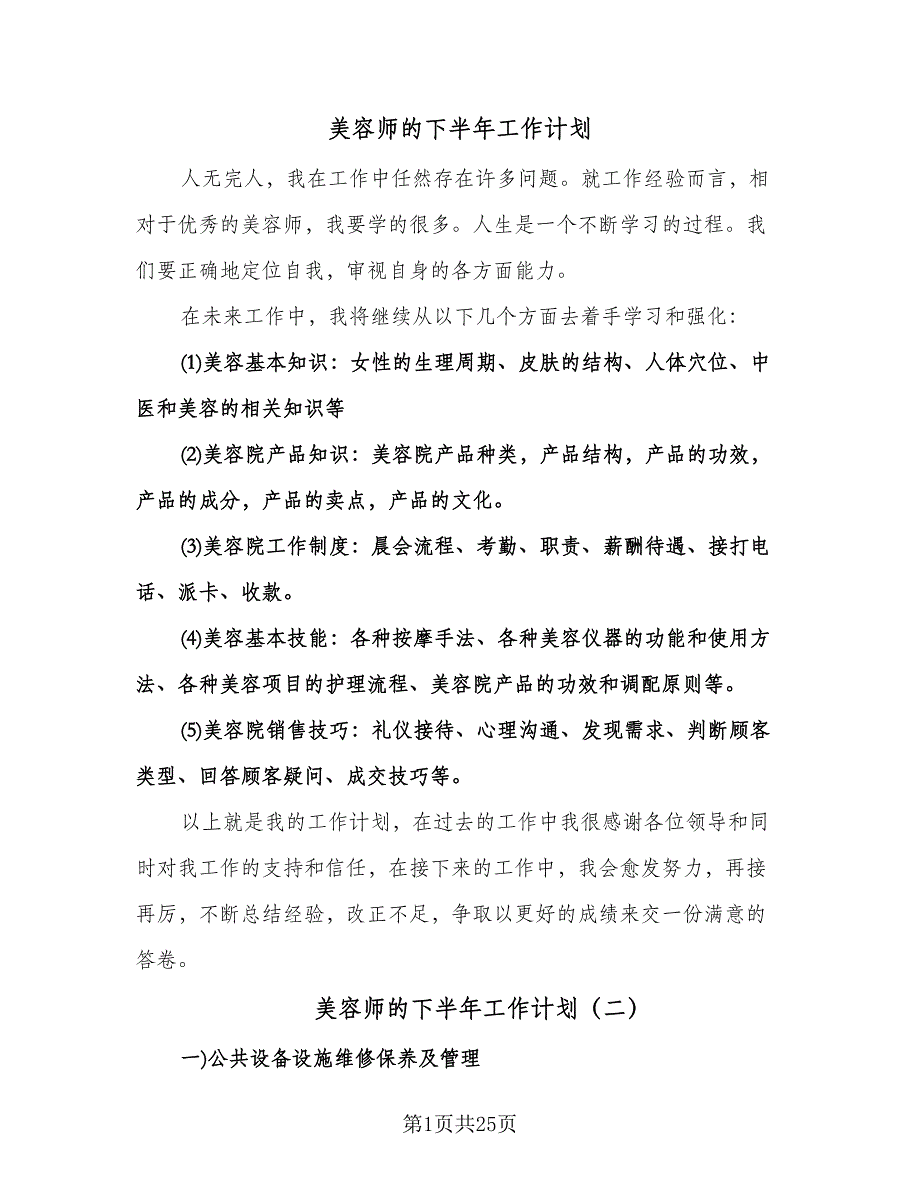 美容师的下半年工作计划
人无完人，我在工作中任然存在许多问题。就工作经验而言，相
对于优秀的美容师，我要学的很多。人生是一个不断学习的过程。我
们要正确地定位自我，审视自身的各方面能力。
在未来工作中，我将继续从以下几个方面去着手学习和强化：
(1)美容基本知识：女性的生理周期、皮肤的结构、人体穴位、中
医和美容的相关知识等
(2)美容院产品知识：美容院产品种类，产品结构，产品的功效，
产品的成分，产品的卖点，产品的文化。
(3)美容院工作制度：晨会流程、考勤、职责、薪酬待遇、接打电
话、派卡、收款。
(4)美容基本技能：各种按摩手法、各种美容仪器的功能和使用方
法、各种美容项目的护理流程、美容院产品的功效和调配原则等。
(5)美容院销售技巧：礼仪接待、心理沟通、发现需求、判断顾客
类型、回答顾客疑问、成交技巧等。
以上就是我的工作计划，在过去的工作中我很感谢各位领导和同
时对我工作的支持和信任，在接下来的工作中，我会愈发努力，再接
再厉，不断总结经验，改正不足，争取以更好的成绩来交一份满意的
答卷。
美容师的下半年工作计划（二）
一)公共设备设施维修保养及管理
第1页共25页